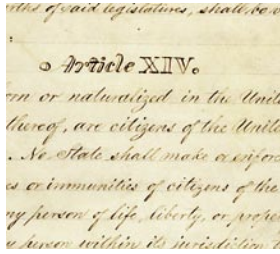 of said legislatures, shall be
:
Article XIV.
or naturalized in the Unit
thereof, are citizens of the Unite
. No State shall make or enforc
es or immunities of citizens of the
ny person of life, liberty, or prope
person within its jurisdiction